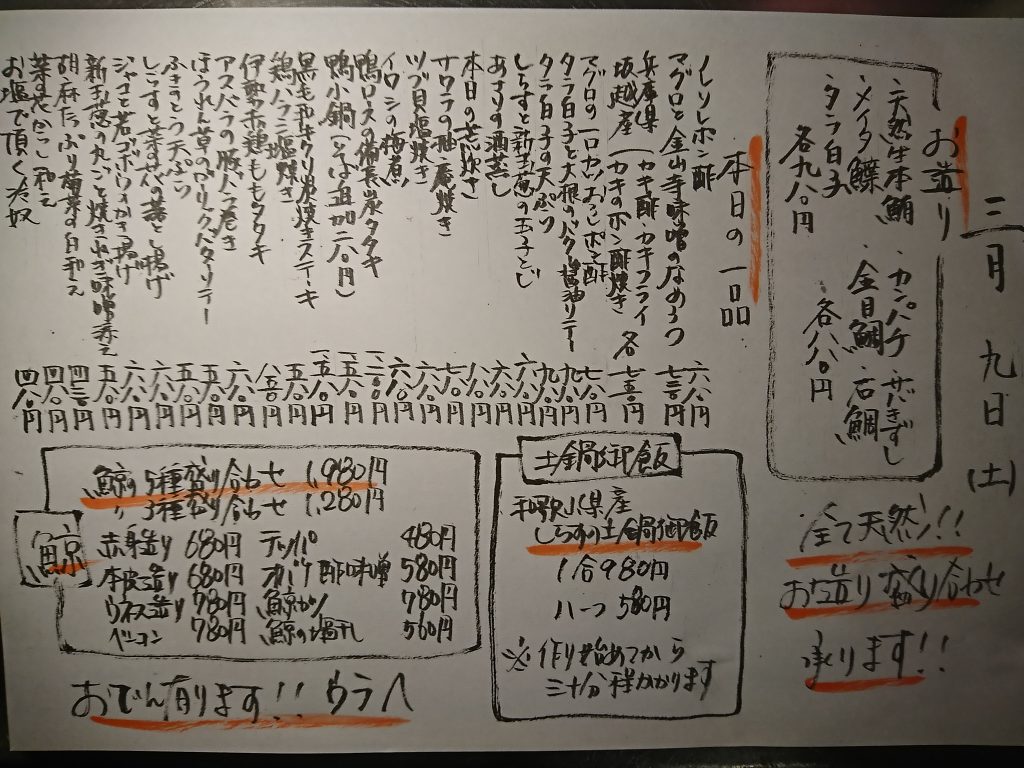 三月 九日 (土)
お造り
・天然生本鮪 ・カンパチ ・サバきずし
・メイタ鰈 ・金目鯛 ・石鯛
・タラ白子 各八八〇円
各九八〇円
全て天然!!
お造り盛り合わせ
承ります!!
本日の一品
ノレソレポン酢 六八〇円
マグロと金山寺味噌のなめろう 七三〇円
兵庫県 (カキ酢・カキフライ
坂越産 (カキのポン酢焼き 各七五〇円
マグロの一口カツおろしポン酢 七八〇円
タラ白子と大根のバター醤油ソテー 九八〇円
タラ白子の天ぷら 九八〇円
しらすと新玉葱の玉子とじ 六八〇円
あさりの酒蒸し
本日の芝煮き
サワラの油庵焼き
ツブ貝塩焼き 七八〇円
イワシの梅煮 六八〇円
鴨ロースの備長炭タタキ
鴨小鍋 (そば追加二八〇円)
黒毛和牛クリ炭焼きステーキ
鶏ハラミ塩焼き 五八〇円
伊勢赤鶏ももタタキ 八五〇円
アスパラの豚バラ巻き 六八〇円
ほうれん草のガーリックバターソテー 五八〇円
ふきのとう天ぷら 五八〇円
しらすと菜の花の落とし揚げ 六八〇円
ジャコと若ゴボウのかき揚げ 六八〇円
新玉葱の丸ごと焼き
胡麻たっぷり 白和え 四八〇円
菜の花からし和え 四八〇円
お塩で頂く冷奴 四八〇円
土鍋御飯
和歌山県産
しらすの土鍋御飯
1合 980円
ハーフ 580円
※作り始めてから
三十分程かかります
鯨
鯨の5種盛り合わせ 1,980円
〃 3種盛り合わせ 1,280円
赤身造り 680円 テッパ 480円
本皮造り 680円 オバケ酢味噌 580円
ウネス造り 780円 鯨かつ 780円
ベーコン 780円 鯨の塩干し 560円
おでん有ります!! ウラへ